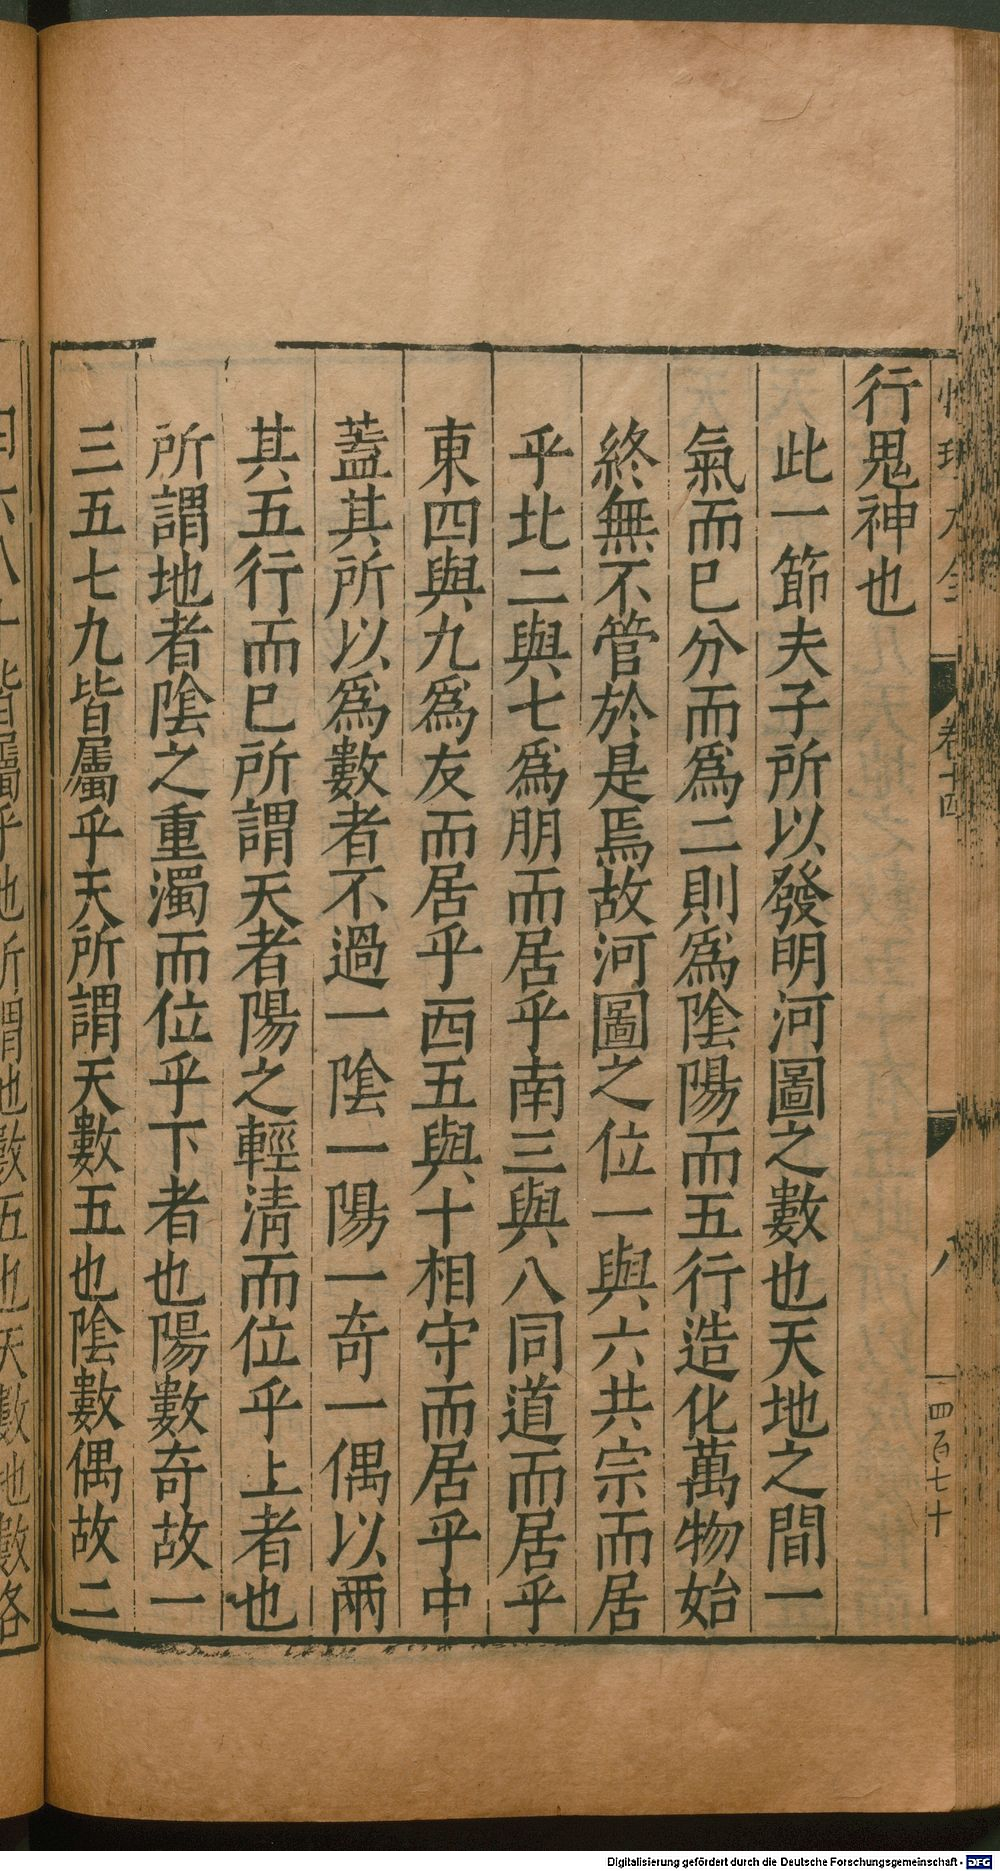 行鬼神也
此一節夫子所以發明河圖之數也天地之間一
氣而已分而爲二則爲陰陽而五行造化萬物始
終無不管於是焉故河圖之位一與六共宗而居
乎北二與七爲朋而居乎南三與八同道而居乎
東四與九爲友而居乎西五與十相守而居乎中
蓋其所以爲數者不過一陰一陽一奇一偶以兩
其五行而已所謂天者陽之輕清而位乎上者也
所謂地者陰之重濁而位乎下者也陽數奇故一
三五七九皆屬乎天所謂天數五也陰數偶故二
四六八十皆屬乎地所謂地數五也天數地數各
性理大全
卷十四
八
四百七十
Digitalisierung gefördert durch die Deutsche Forschungsgemeinschaft - DFG